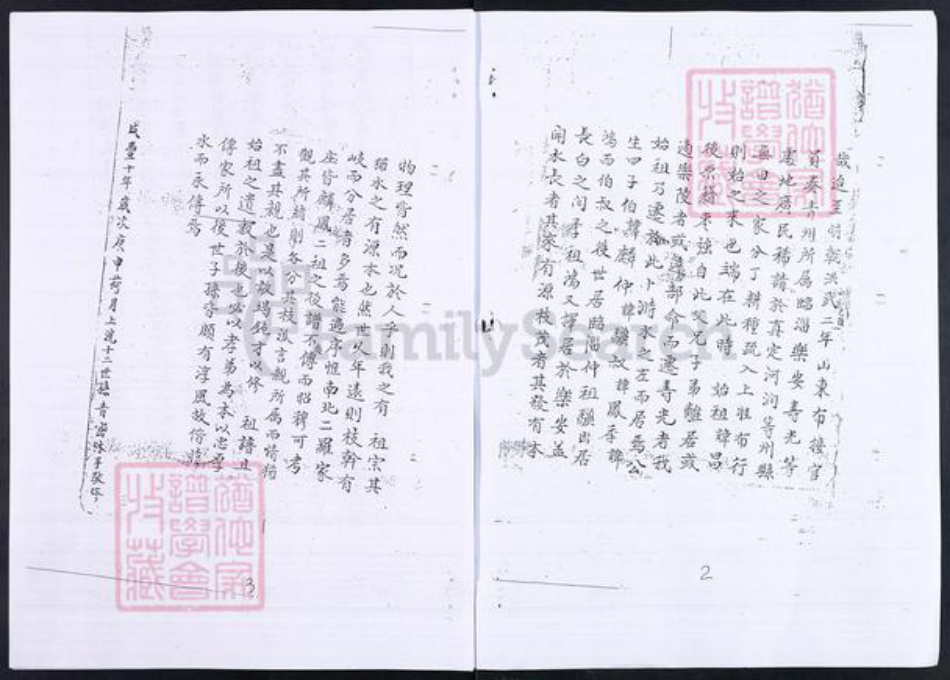 歲迨至明朝洪武二年山東布按官
員奏青州所属臨淄樂安壽光等
處地廣民稀請於真定河間等州縣
無田之家分丁耕種疏入上准而行
則始之来也端在此時 始祖諱昌
後原籍棗強自此父兄子弟離居或
適樂陵者或遵部命而遷壽光者我
始祖乃遷於此卜淄水之左而居焉公
生四子伯諱麟仲諱驥叔諱鳳季諱
鴻而伯叔之後世居臨淄仲祖驥出居
長白之間季祖鴻又擇居於樂安益
聞水長者其家有源枝茂者其發有本
物理皆然而况於人乎則我之有 祖宗其
猶水之有源本也然世火年遠則枝幹有
岐而分居者多焉能遍序惟南北二羅家
庄皆麟鳳二祖之後譜不傳而昭穆可考
観其所緒則各分其枝派言親所属而情衍
不盡其親也是以硃鈍才以修 祖譜且
始祖之遺教於後也必以孝弟為本以忠厚
傳家所以後世子孫吝頗有淳風故倚
水而永傳焉
咸豐十年歲次庚申荷月上浣十二世孫音密妹手敬修
猶他家譜學會收藏
猶他家譜學會收藏
2
3
FamilySearch